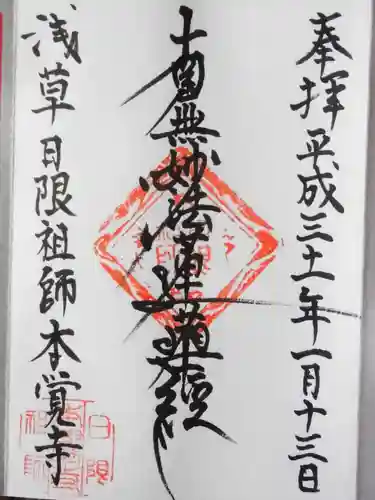 奉拝平成三十一年一月十三日
南無妙法蓮華経
浅草日限祖師本覚寺
日限
祖師